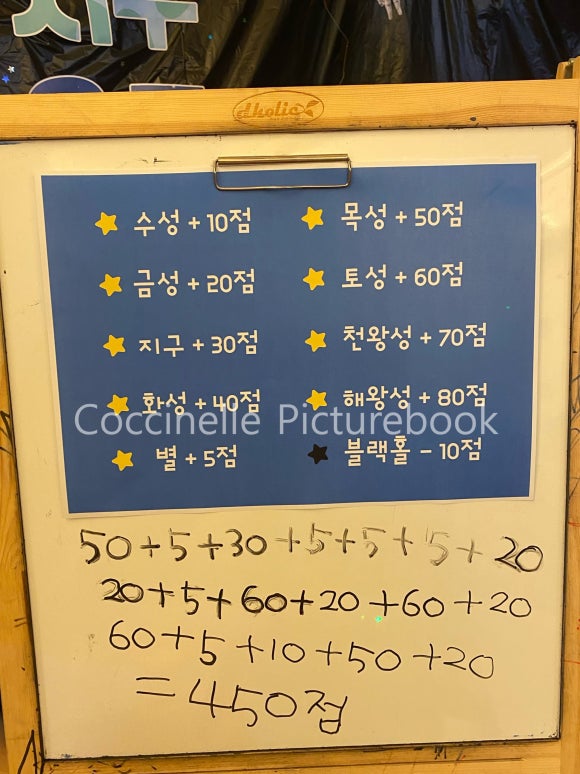 지구
dholic
수성 + 10점
금성 + 20점
지구 + 30점
화성 + 40점
별 + 5점
목성 + 50점
토성 + 60점
천왕성 + 70점
해왕성 + 80점
블랙홀 - 10점
Coccinelle Picturebook
50+5+30+5+5+5+20
20+5+60+20+60+20
60+5+10+50+20
=450점